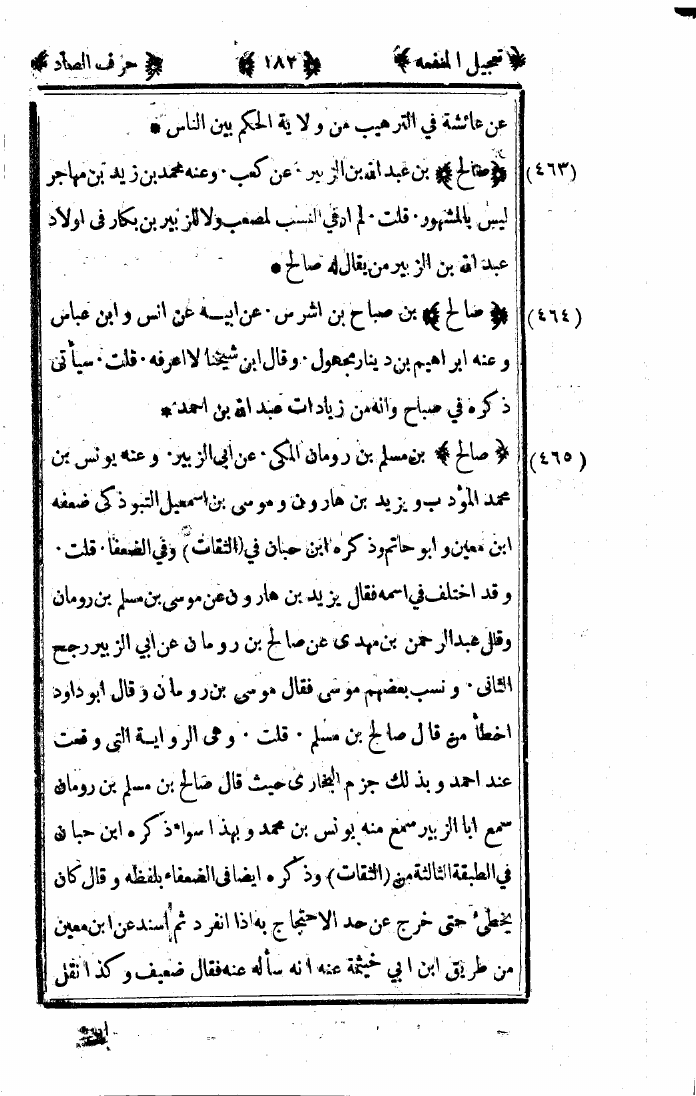 ﴿ تعجيل المنفعه ﴾ ﴿ ١٨٢ ﴾ ﴿ حرف الصاد ﴾
عن عائشة في الترهيب من ولاية الحكم بين الناس *
(٤٦٣) ﴿ صالح ﴾ بن عبد الله بن الزبير · عن كعب · وعنه محمد بن زيد بن مهاجر
ليس بالمشهور · قلت · لم ار في النسب لمصعب ولا للزبير بن بكار فى اولاد
عبد الله بن الزبير من يقال له صالح *
(٤٦٤) ﴿ صالح ﴾ بن صباح بن اشرس · عن ابيه عن انس و ابن عباس
و عنه ابراهيم بن دينار مجهول · وقال ابن شيخنا لا اعرفه · قلت · سيأتى
ذكره في صباح وانه من زيادات عبد الله بن احمد *
(٤٦٥) ﴿ صالح ﴾ بن مسلم بن رومان المكى · عن ابى الزبير · و عنه يونس بن
محمد المؤدب و يزيد بن هارون و موسى بن اسمعيل التبوذكى ضعفه
ابن معين و ابو حاتم وذكره ابن حبان في (الثقات) وفي الضعفا · قلت ·
و قد اختلف في اسمه فقال يزيد بن هارون عن موسى بن مسلم بن رومان
وقال عبد الرحمن بن مهدى عن صالح بن رومان عن ابي الزبير رجح
الثانى · و نسب بعضهم موسى فقال موسى بن رومان و قال ابو داود
اخطأ من قال صالح بن مسلم · قلت · وهى الرواية التى وقعت
عند احمد و بذلك جزم البخارى حيث قال صالح بن مسلم بن رومان
سمع ابا الزبير سمع منه يونس بن محمد و بهذا سواء ذكره ابن حبان
في الطبقة الثالثة من (الثقات) وذكره ايضا فى الضعفاء بلفظه و قال كان
يخطئ حتى خرج عن حد الاحتجاج به اذا انفرد ثم اسند عن ابن معين
من طريق ابن ابي خيثمة عنه انه سأله عنه فقال ضعيف و كذا نقل